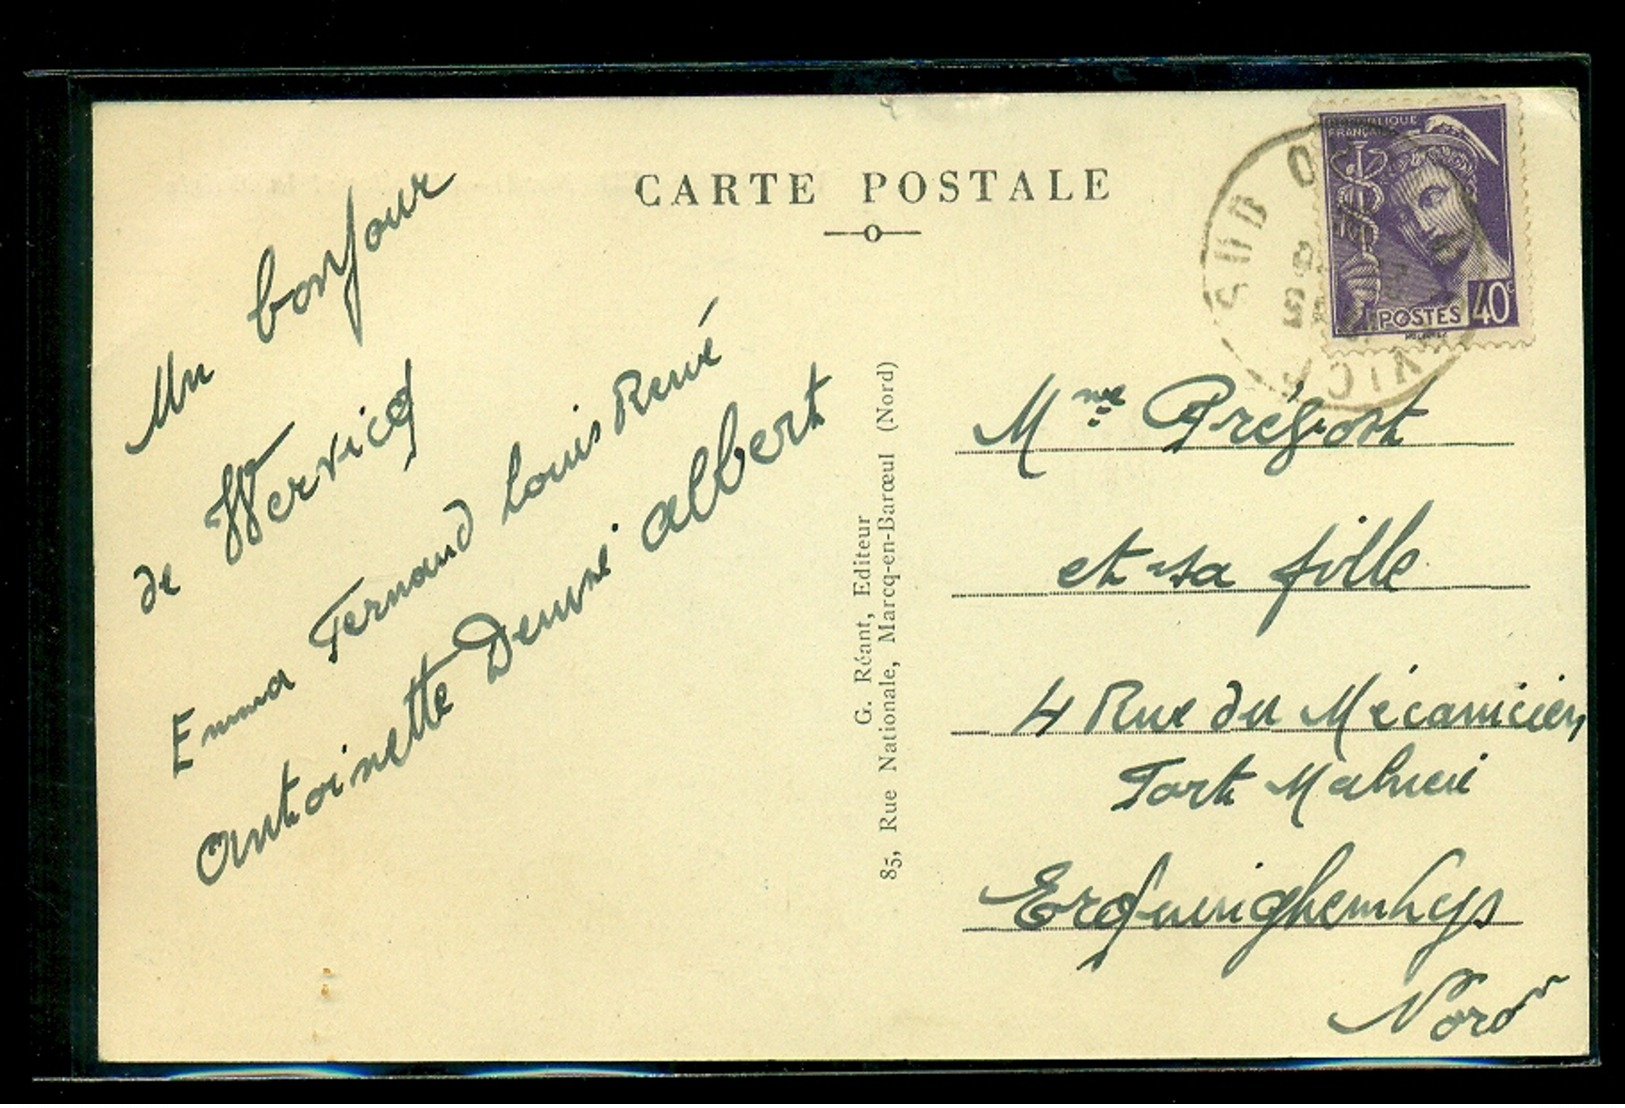 CARTE POSTALE
Un bonjour
de Wervicq
Emma Fernand Louis René
Antoinette Albert
G. Réant, Editeur
85, Rue Nationale, Marcq-en-Barœul (Nord)
RÉPUBLIQUE
FRANÇAISE
POSTES 40c
SUD
Mme Prévost
et sa fille
4 Rue du Mécanicien
Fort
Erquinghem Lys
Nord